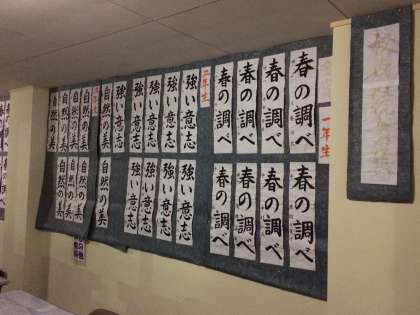 一年生
春の調べ
春の調べ
春の調べ
春の調べ
春の調べ
春の調べ
春の調べ
春の調べ
二年生
強い意志
強い意志
強い意志
強い意志
強い意志
強い意志
強い意志
強い意志
強い意志
自然の美
自然の美
自然の美
自然の美
自然の美
自然の美
自然の美
自然の美